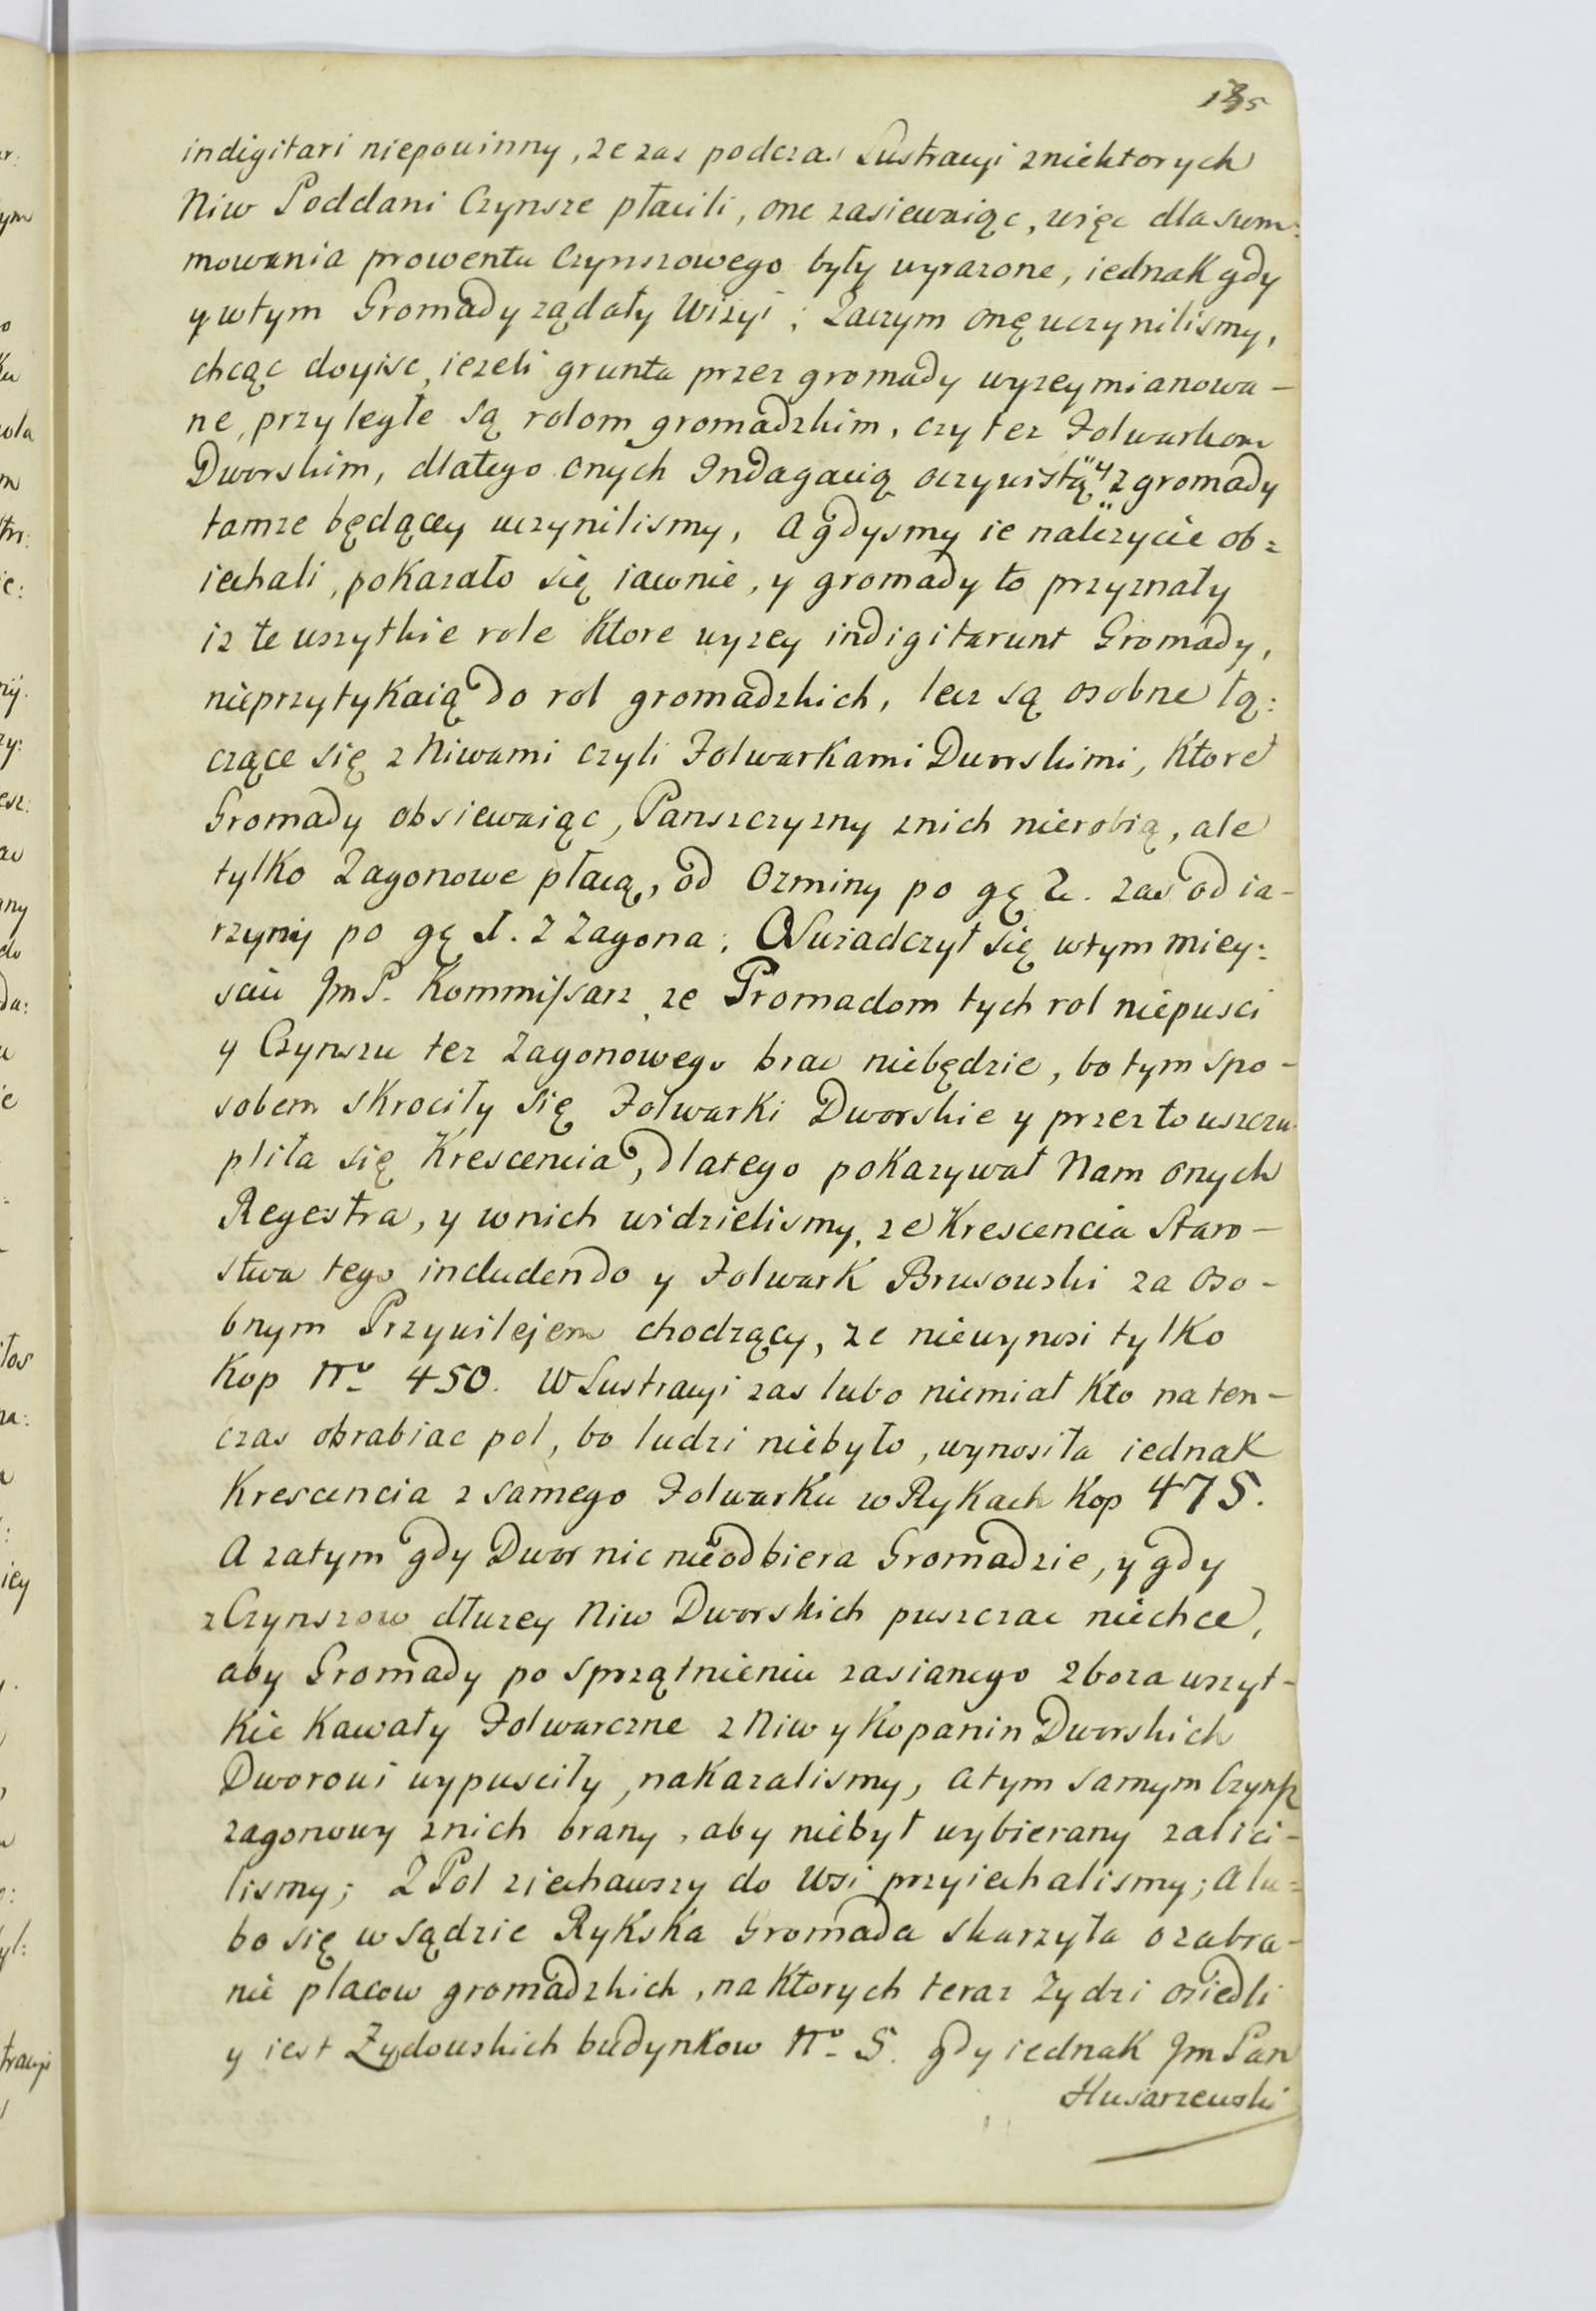 indigitari niepowinny, ze zas podczas Lustracyi zniektorych
Niw Poddani Czynsze płacili, one zasiewaiąc, więc dla sum:
mowania prowentu Czynszowego były wyrazone, iednak gdy
y wtym Gromady ządały Wizyi; Zaczym onę uczynilismy,
chcąc doyisc, iezeli grunta przez gromady wyzeymianowa-
ne, przyległe są rolom gromadzkim, czy tez Folwarkom
Dworskim, dlatego onych Indagacią oczywistą y z gromady
tamze będącey uczynilismy, A gdysmy ie nalezycie ob=
iechali, pokazało się iawnie, y gromady to przyznały
iz te wszytkie role Ktore wyzey indigitarunt Gromady,
nieprzytykaią do rol gromadzkich, lecz są osobne łą:
czące się z Niwami czyli Folwarkami Dworskimi, Ktore
Gromady obsiewaiąc, Panszczyzny znich nierobią, ale
tylko Zagonowe płacą, od Ozminy po gę 2. zas od ia-
rzyny po gę 1. z Zagona; Oswiadczył się wtym miey:
scu Jm P. Kommissarz ze Gromadom tych rol niepusci
y Czynszu tez Zagonowego brac niebędzie, bo tym spo-
sobem skrociły się Folwarki Dworskie y przez to uszczu-
pliła się Krescencia, dlatego pokazywał Nam onych
Regestra, y wnich widzielismy, ze Krescencia Staro-
stwa tego includendo y Folwark Brusowski za oso-
bnym Przywilejem chodzący, ze niewynosi tylko
Kop No 450. W Lustracyi zas lubo niemiał Kto na ten-
czas obrabiac pol, bo ludzi niebyło, wynosiła iednak
Krescencia z samego Folwarku w Rykach Kop 475.
A zatym gdy Dwor nic nieodbiera Gromadzie, y gdy
z Czynszow dłuzey Niw Dworskich puszczac niechce,
aby Gromady po sprzątnieniu zasianego zboza wszyt-
kie Kawały Folwarczne z Niw y Kopanin Dworskich
Dworowi wypusciły, nakazalismy, a tym samym Czynsz
zagonowy znich brany, aby niebył wybierany zalici-
lismy; Z Pol ziechawszy do Wsi przyiechalismy; A lu=
bo się w sądzie Rykska Gromada skarzyła o zabra-
nie placow gromadzkich, na Ktorych teraz Zydzi osiedli
y iest Zydowskich budynkow No 5. gdy iednak Jm Pan
Husarzewski